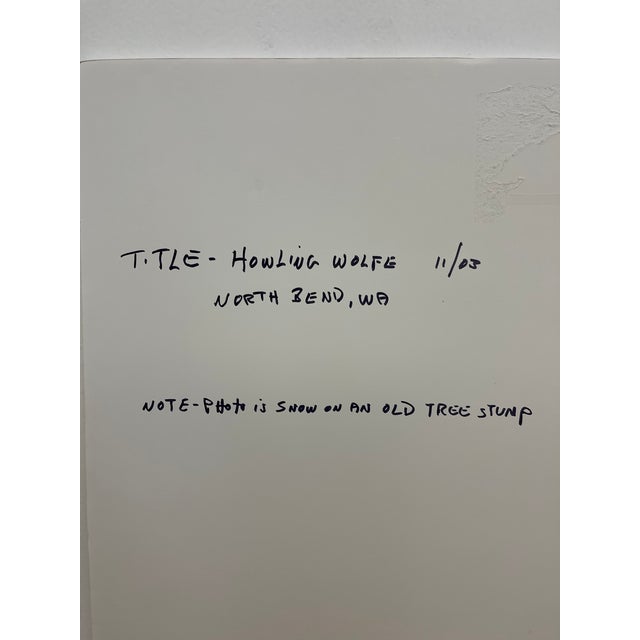 TITLE - HOWLING WOLFE 11/03
NORTH BEND, WA
NOTE - PHOTO IS SNOW ON AN OLD TREE STUMP